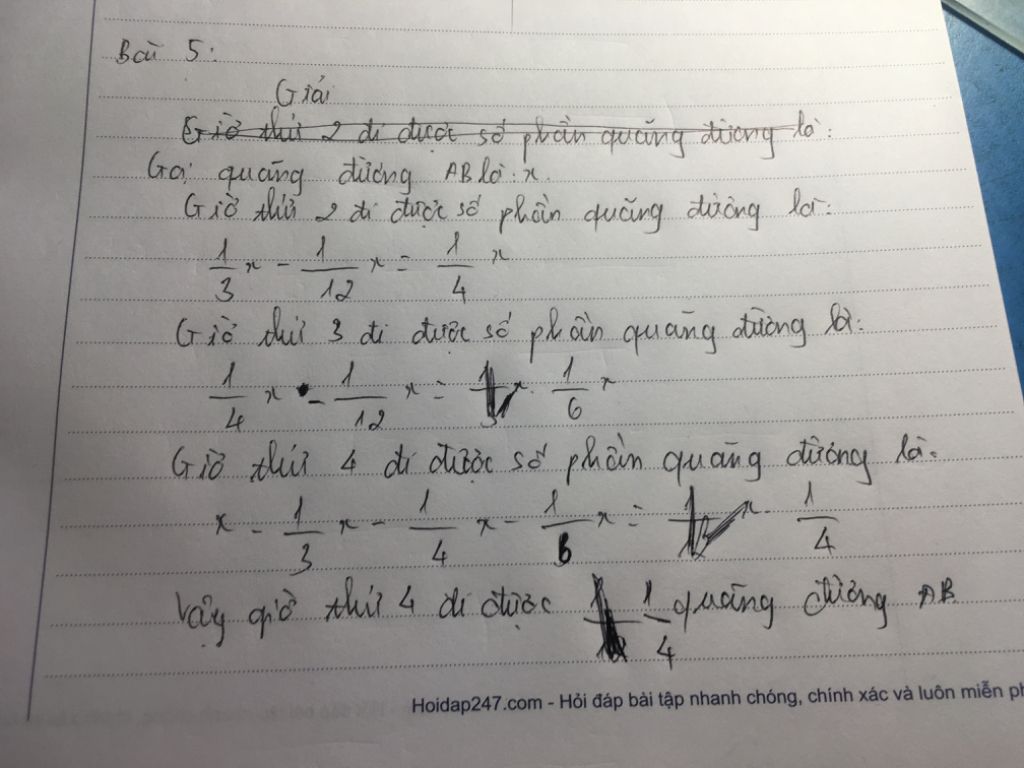 Bài 5:
Giải
Giờ thứ 2 đi được số phần quãng đường là:
Gọi quãng đường AB là: x.
Giờ thứ 2 đi được số phần quãng đường là:
1/3 x - 1/12 x = 1/4 x
Giờ thứ 3 đi được số phần quãng đường là:
1/4 x - 1/12 x = 1/6 x
Giờ thứ 4 đi được số phần quãng đường là:
x - 1/3 x - 1/4 x - 1/6 x = 1/4
Vậy giờ thứ 4 đi được 1/4 quãng đường AB
Hoidap247.com - Hỏi đáp bài tập nhanh chóng, chính xác và luôn miễn ph